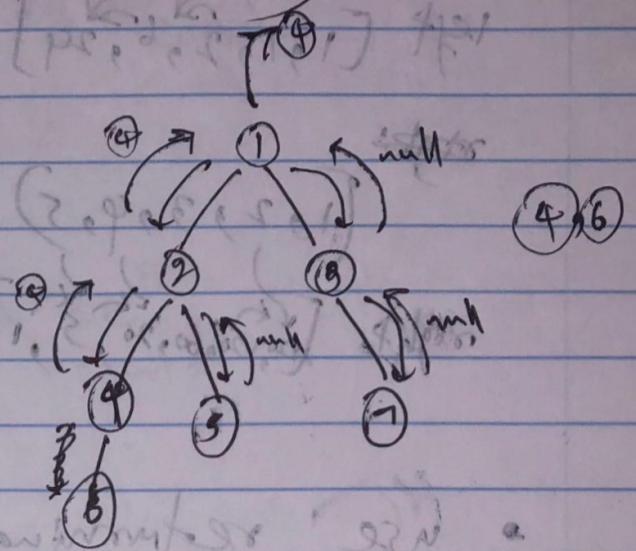 4
4 1 null
4, 6
4 2 3
null null
4 5 7
6